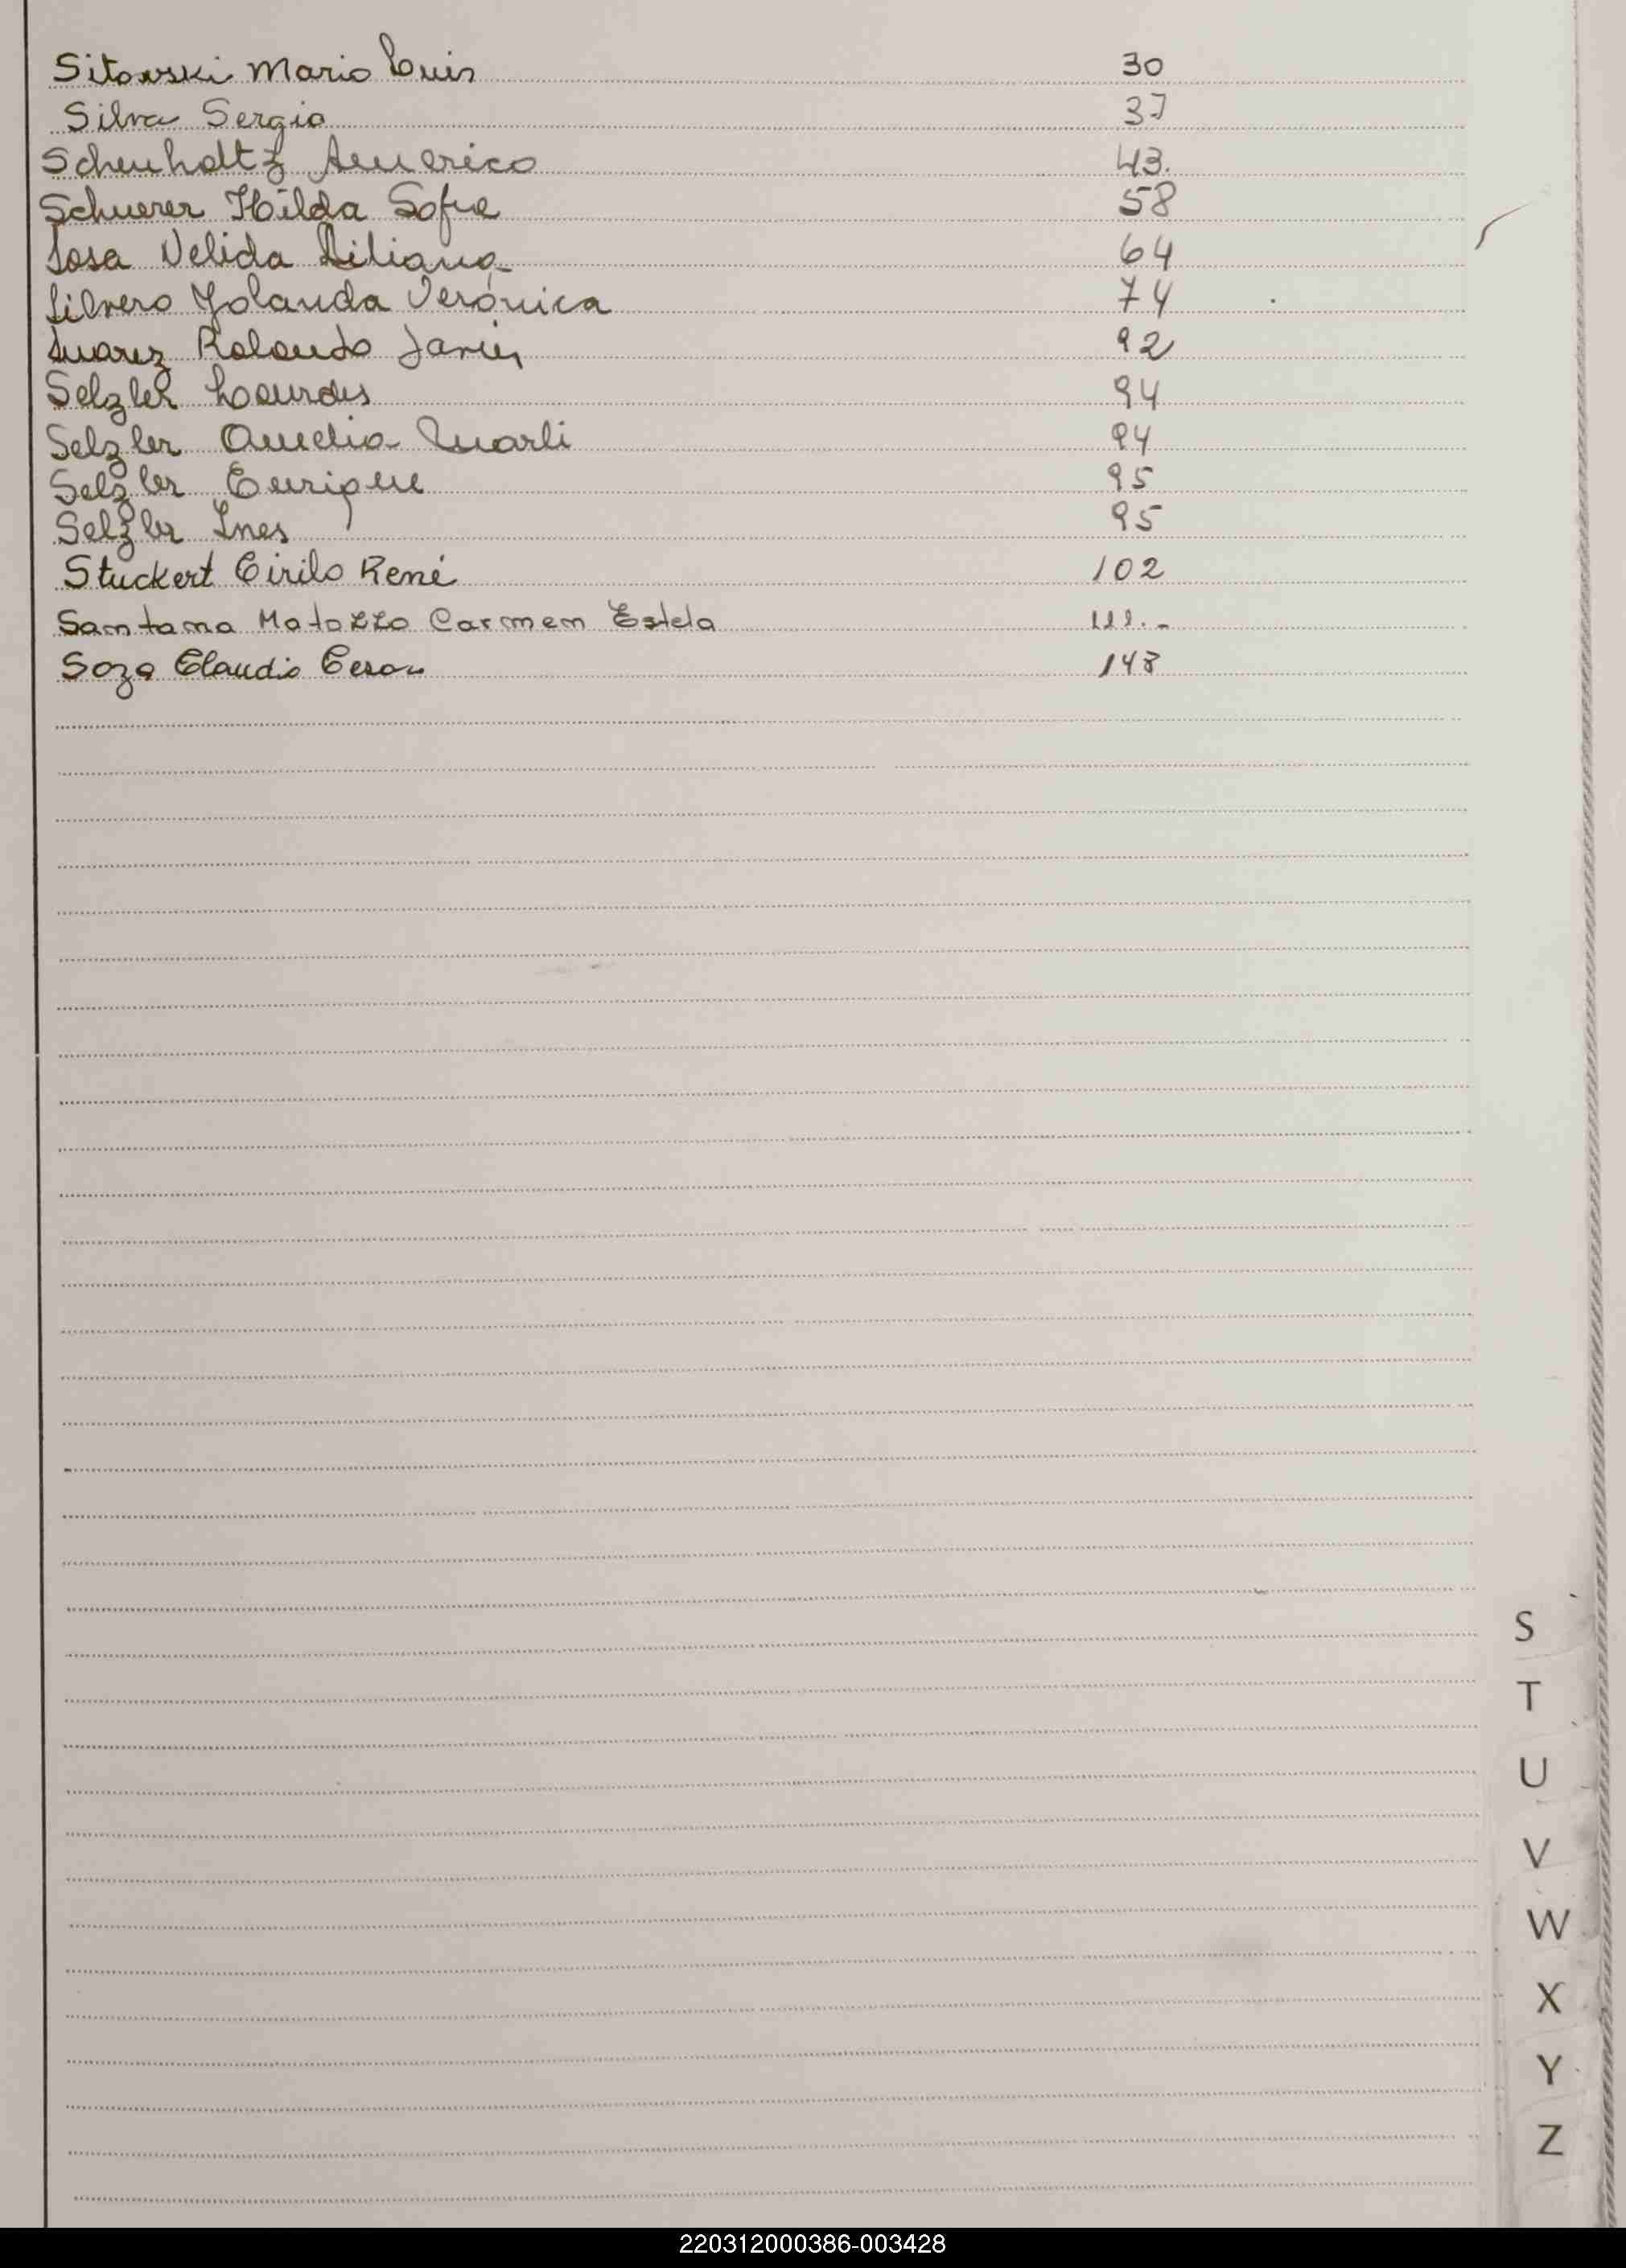 Sitowski Mario Luis 30
Silva Sergio 37
Scheuholtz Americo 43.
Schuerer Hilda Sofia 58
Sosa Nelida Liliana 64
Silvero Yolanda Verónica 74
Suarez Rolando Javier 92
Selzler Lourdes 94
Selzler Amelia Marli 94
Selzler Enrique 95
Selzler Ines 95
Stuckert Cirilo René 102
Santana Matozzo Carmen Estela 111.-
Soza Claudio Cesar 148
S
T
U
V
W
X
Y
Z
220312000386-003428